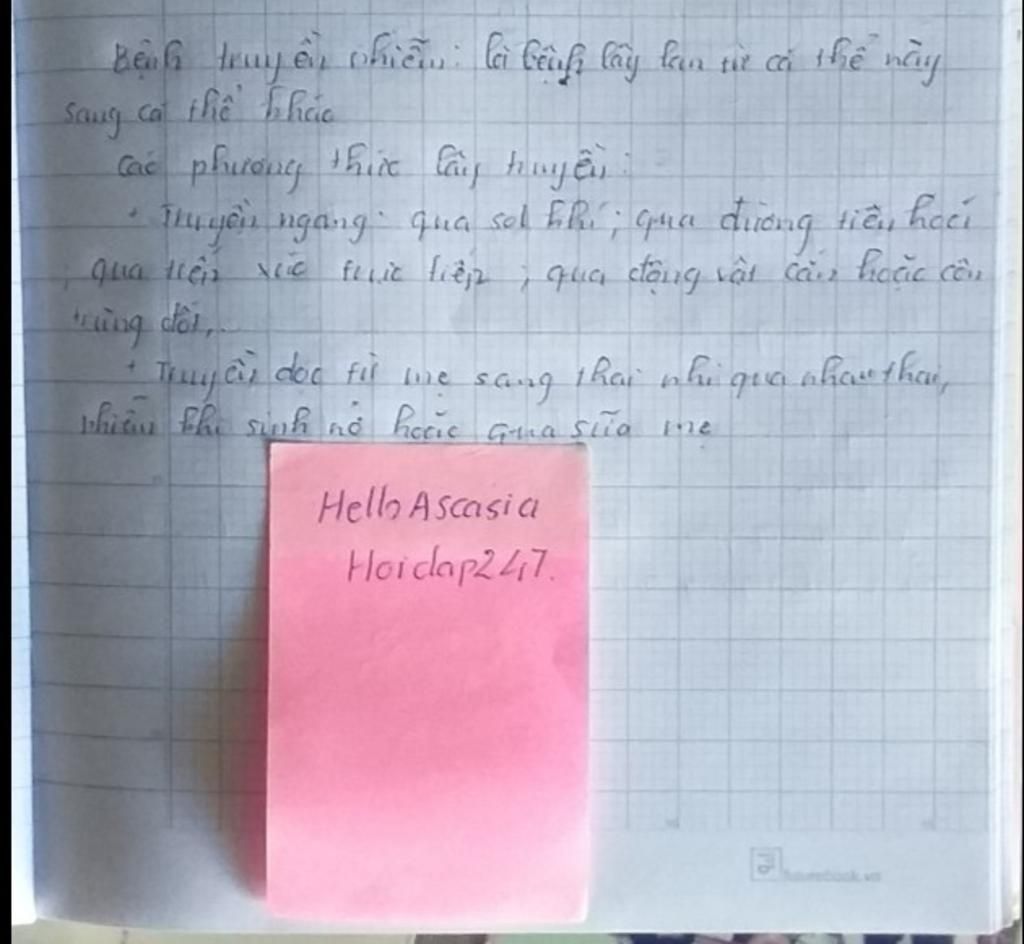 Bệnh truyền nhiễm: là bệnh lây lan từ cá thể này
sang cá thể khác
Các phương thức lây truyền:
+ Truyền ngang: qua sol khí; qua đường tiêu hoá
; qua tiếp xúc trực tiếp; qua động vật cắn hoặc côn
trùng đốt,..
+ Truyền dọc từ mẹ sang thai nhi qua nhau thai,
nhiễm khi sinh nở hoặc qua sữa mẹ
Hello Ascasia
Hoidap247.